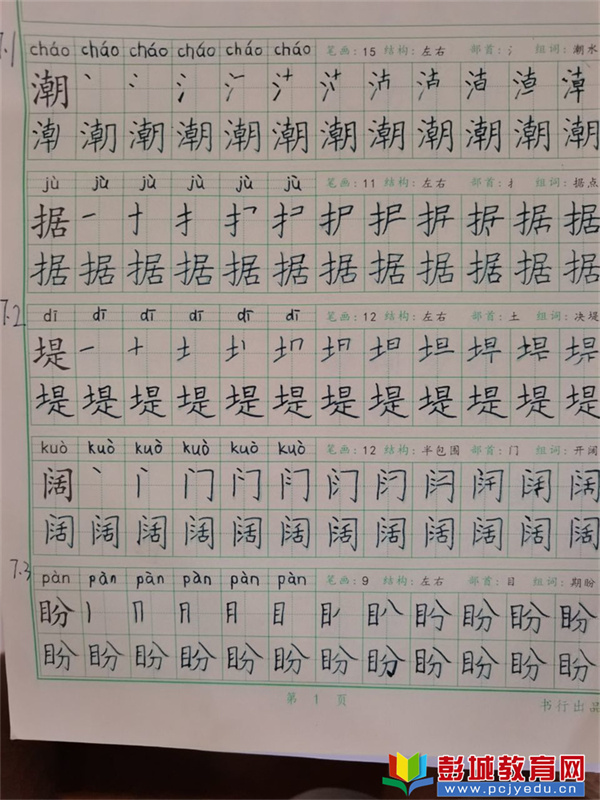 7.1
cháo cháo cháo cháo cháo cháo 笔画：15 结构：左右 部首：氵 组词：潮水
潮 丶 氵
潮 潮 潮 潮 潮 潮 潮 潮 潮 潮 潮
jù jù jù jù jù jù 笔画：11 结构：左右 部首：扌 组词：据点
据 一 十 扌 护 据 据
据 据 据 据 据 据 据 据 据 据 据 据
7.2
dī dī dī dī dī dī 笔画：12 结构：左右 部首：土 组词：决堤
堤 一 十 土 坦
堤 堤 堤 堤 堤 堤 堤 堤 堤 堤 堤 堤
kuò kuò kuò kuò kuò kuò 笔画：12 结构：半包围 部首：门 组词：开阔
阔 丶 门 阔
阔 阔 阔 阔 阔 阔 阔 阔 阔 阔 阔 阔
7.3
pàn pàn pàn pàn pàn pàn 笔画：9 结构：左右 部首：目 组词：期盼
盼 丨 冂 月 目 盼 盼 盼 盼
盼 盼 盼 盼 盼 盼 盼 盼 盼 盼 盼 盼
第 1 页
书行出品
彭城教育网
www.pcjyedu.cn